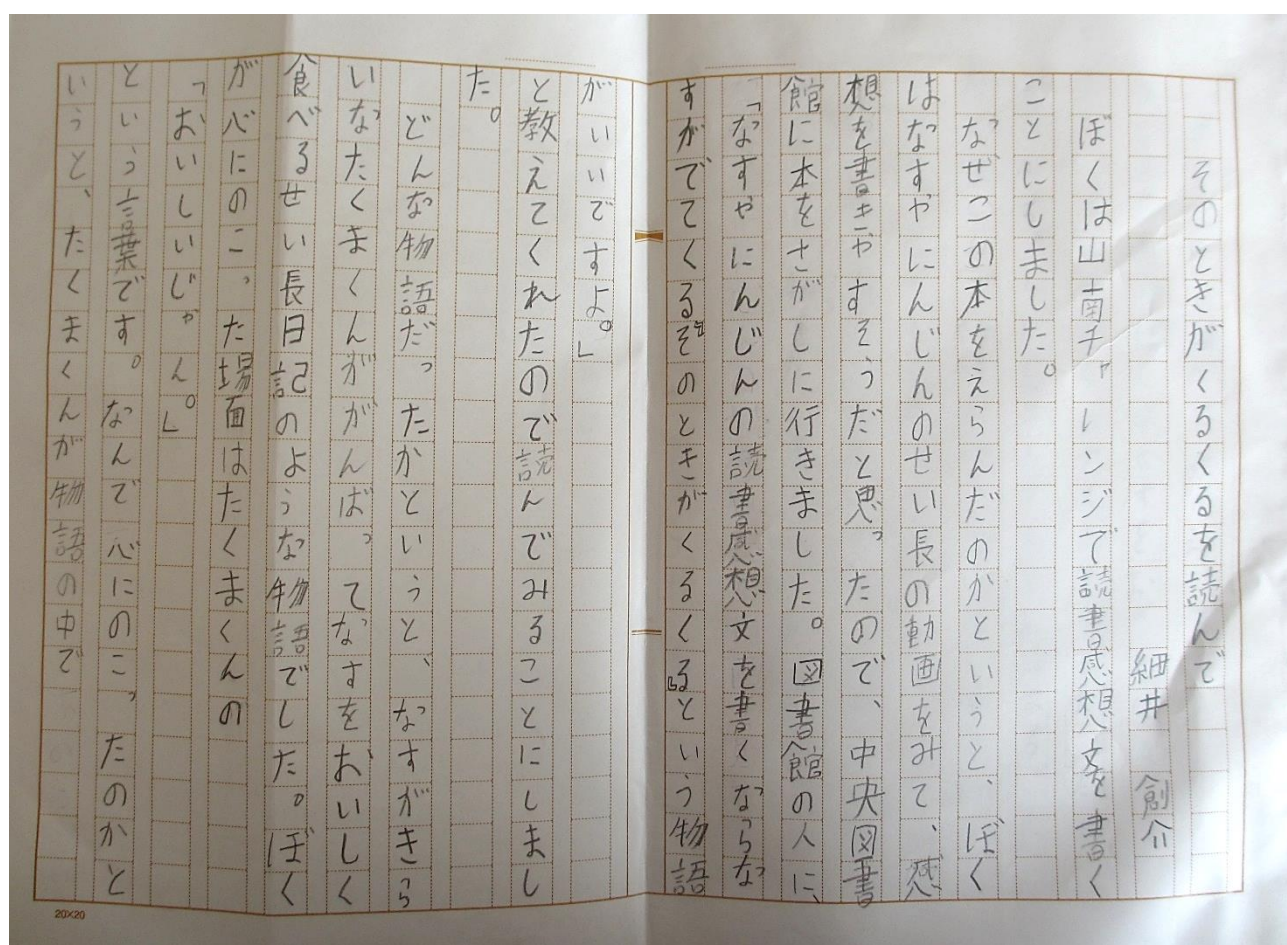 そのときがくるくるを読んで
細井 創介
ぼくは山南チャレンジで読書感想文を書く
ことにしました。
なぜこの本をえらんだのかというと、ぼく
はなすやにんじんのせい長の動画をみて、感
想を書きやすそうだと思ったので、中央図書
館に本をさがしに行きました。図書館の人に、
「なすやにんじんの読書感想文を書くならな
すがでてくる『そのときがくるくる』という物語
がいいですよ。」
と教えてくれたので読んでみることにしまし
た。
どんな物語だったかというと、なすがきら
いなたくまくんががんばってなすをおいしく
食べるせい長日記のような物語でした。ぼく
が心にのこった場面はたくまくんの
「おいしいじゃん。」
という言葉です。なんで心にのこったのかと
いうと、たくまくんが物語の中で
20×20